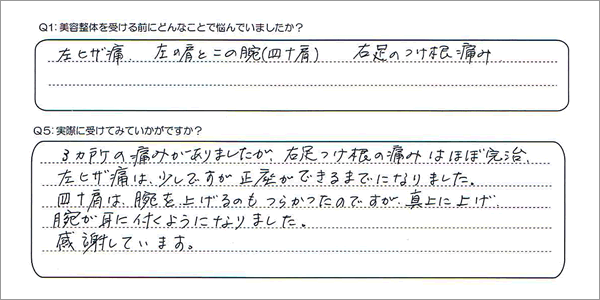 Q1: 美容整体を受ける前にどんなことで悩んでいましたか?
左ヒザ痛、 左の肩と二の腕(四十肩) 右足のつけ根痛み
Q5: 実際に受けてみていかがですか?
3カ所の痛みがありましたが、右足つけ根の痛みはほぼ完治、
左ヒザ痛は、少しですが正座ができるまでになりました。
四十肩は、腕を上げるのもつらかったのですが、真上に上げ、
腕が耳に付くようになりました。
感謝しています。